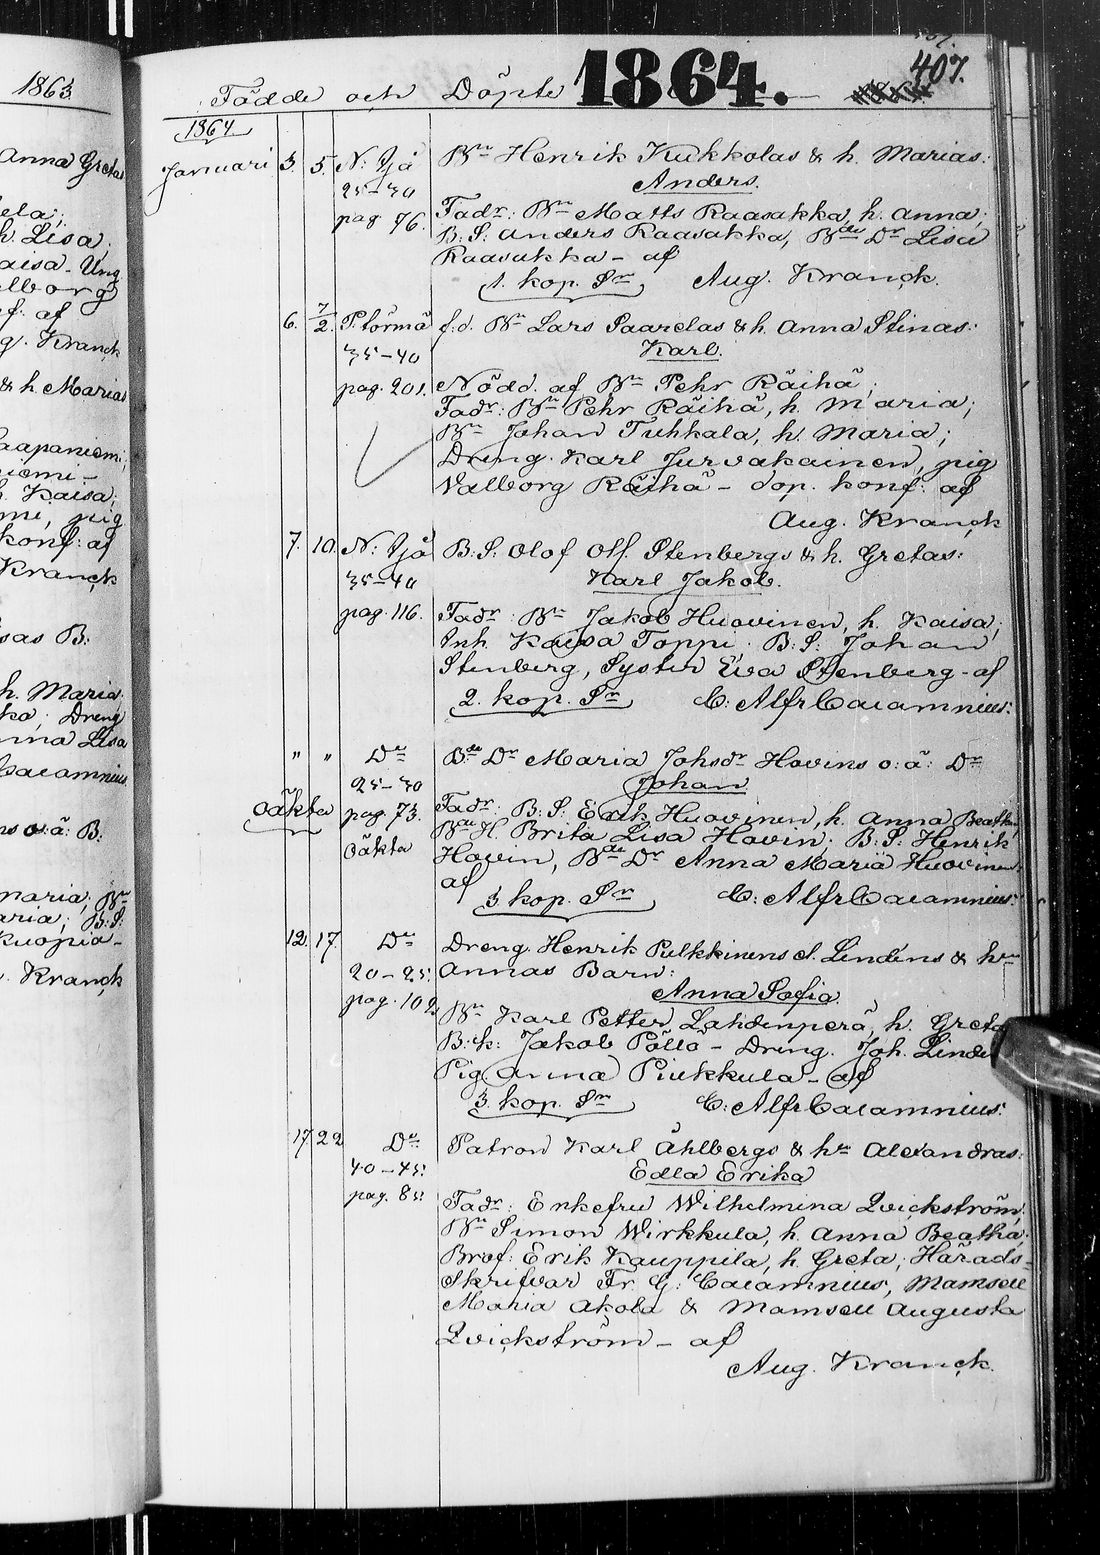 1863
Anna Greta
h. Lisa
aisa - Ung
af
Kranck
& h. Maria
aapaniemi;
niemi -
h. Kaisa;
pig
konf: af
Kranck
B.
h. Maria
Dreng
Lisa
Caiamnius
o. ä: B.
maria; Bn
aria; B.S:
Kuopia -
Kranck
407.
Födde och Döpte 1864.
1864.
Januari 3. 5. N: Ijå Bn Henrik Kukkolas & h. Marias:
25-30 Anders.
pag 76. Fadr: Bn Matts Raasakka, h. Anna;
B.S: Anders Raasakka, Bde Dr Lisa
Raasakka - af
1. kop. Sr Aug. Kranck.
6. 7/2. P.törmä f.d. Bn Lars Paarelas & h. Anna Stinas:
35-40 Karl.
pag. 201. Nödd. af Bn Pehr Räihä;
Fadr: Bn Pehr Räihä, h. Maria;
Bn Johan Tuhkala, h. Maria;
Dreng Karl Jurvakainen, pig
Valborg Räihä - dop. konf: af
Aug. Kranck
7. 10. N: Ijå B.S. Olof Olf. Stenbergs & h. Gretas:
35-40 Karl Jakob.
pag. 116. Fadr: Bn Jakob Huovinen, h. Kaisa;
Inh. Kaisa Toppi; B.S: Johan
Stenberg, Syster Eva Stenberg - af
2. kop. Sr C: Alfr Caiamnius:
" " Do Bde Dr Maria Johsdr Hovins o: ä: Dr
25-30 Johan
Oäkta pag. 73. Fadr: B.S: Erik Huovinen, h. Anna Beatha,
Oäkta Bde H. Brita Lisa Hovin; B.S: Henrik
Hovin, Bde Dr Anna Maria Huovinen:
af
3 kop. Sr C: Alfr Caiamnius:
12. 17. Do Dreng Henrik Pulkkinens l. Lindens & hn
20-25: Annas Barn:
pag. 102. Anna Sofia
Bn Karl Petter Lahdenperä, h. Greta
B.k: Jakob Pöllö - Dreng. Joh. Linde
Pig Anna Piukkula - af
3. kop. Sr C: Alfr Caiamnius:
17 22 Do Patron Karl Åhlbergs & hn Alexandras:
40-45: Edla Erika
pag. 85: Fadr: Enkefru Wilhelmina Qvickström,
Bn Simon Wirkkula, h. Anna Beatha;
Brof: Erik Kauppila, h. Greta; Härads-
skrifvar Fr. G: Caiamnius, Mamsell
Maria Akola & Mamsell Augusta
Qvickström - af
Aug. Kranck.